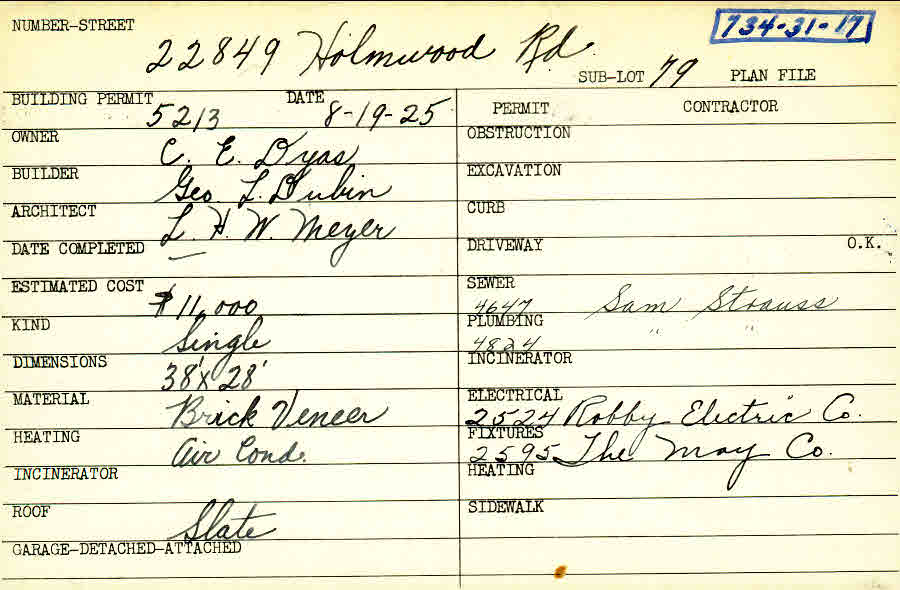 NUMBER-STREET 22849 Holmwood Rd. 734-31-17
SUB-LOT 79 PLAN FILE
BUILDING PERMIT 5213 DATE 8-19-25
OWNER C. E. Dyas
BUILDER Geo. L. Dubin
ARCHITECT L. H. W. Meyer
DATE COMPLETED —
ESTIMATED COST $11,000
KIND Single
DIMENSIONS 38' x 28'
MATERIAL Brick Veneer
HEATING Air Cond.
INCINERATOR
ROOF Slate
GARAGE-DETACHED-ATTACHED
PERMIT CONTRACTOR
OBSTRUCTION
EXCAVATION
CURB
DRIVEWAY O.K.
SEWER 4647 Sam Strauss
PLUMBING 4824 " "
INCINERATOR
ELECTRICAL 2524 Robby Electric Co.
FIXTURES 2595 The May Co.
HEATING
SIDEWALK